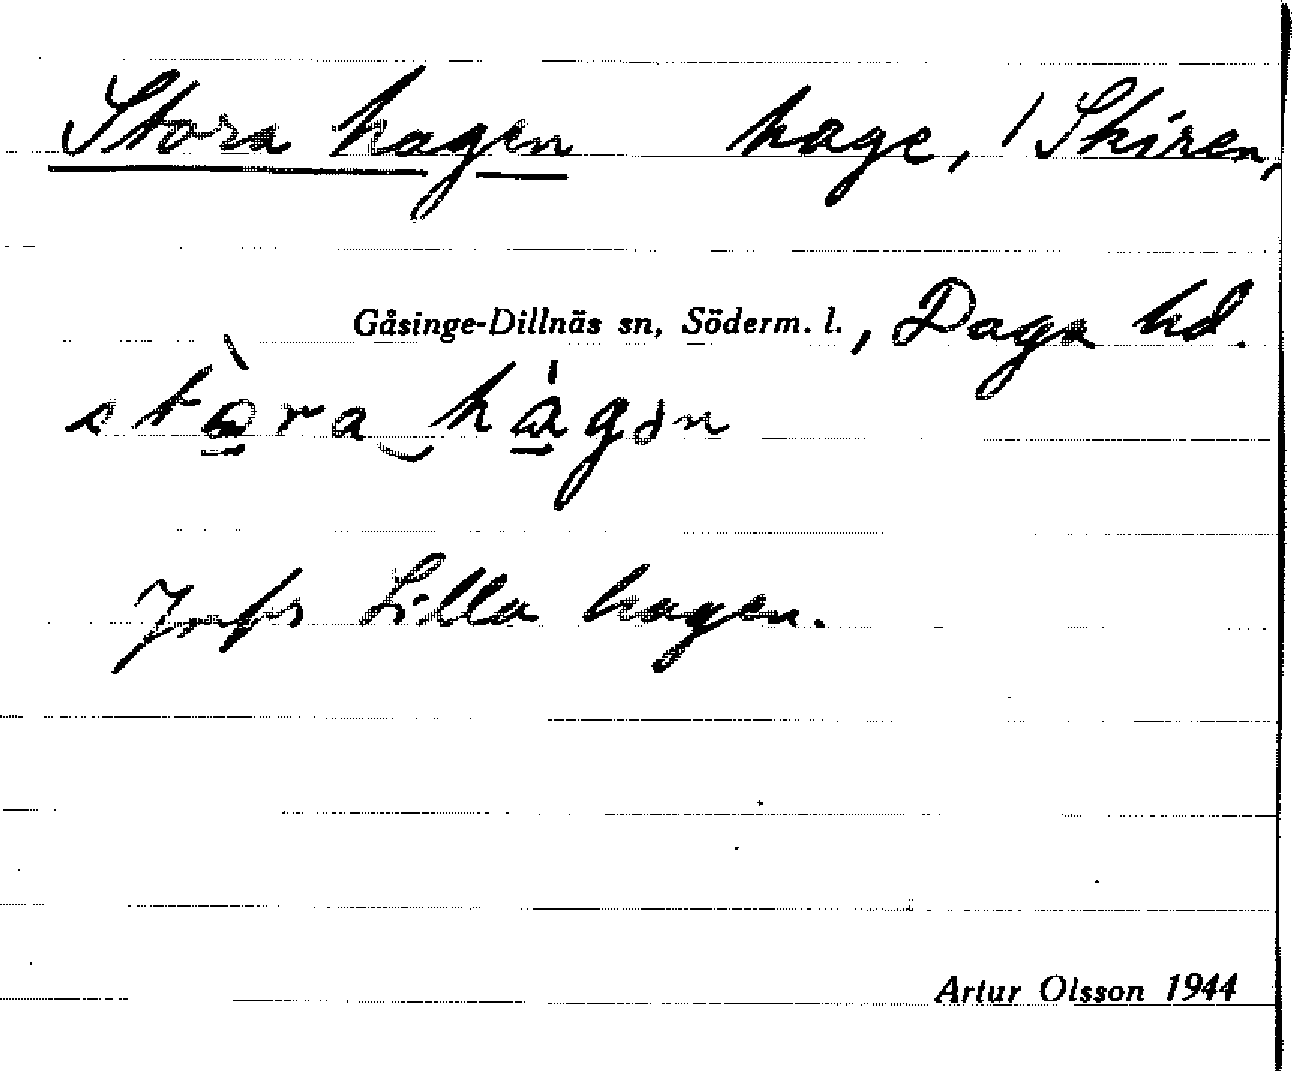 Stora hagen hage, 1 Skiren,
Gåsinge-Dillnäs sn, Söderm. l., Daga hd.
stὰ̱ra‿há̱gən
Jmfr Lilla hagen.
Artur Olsson 1944